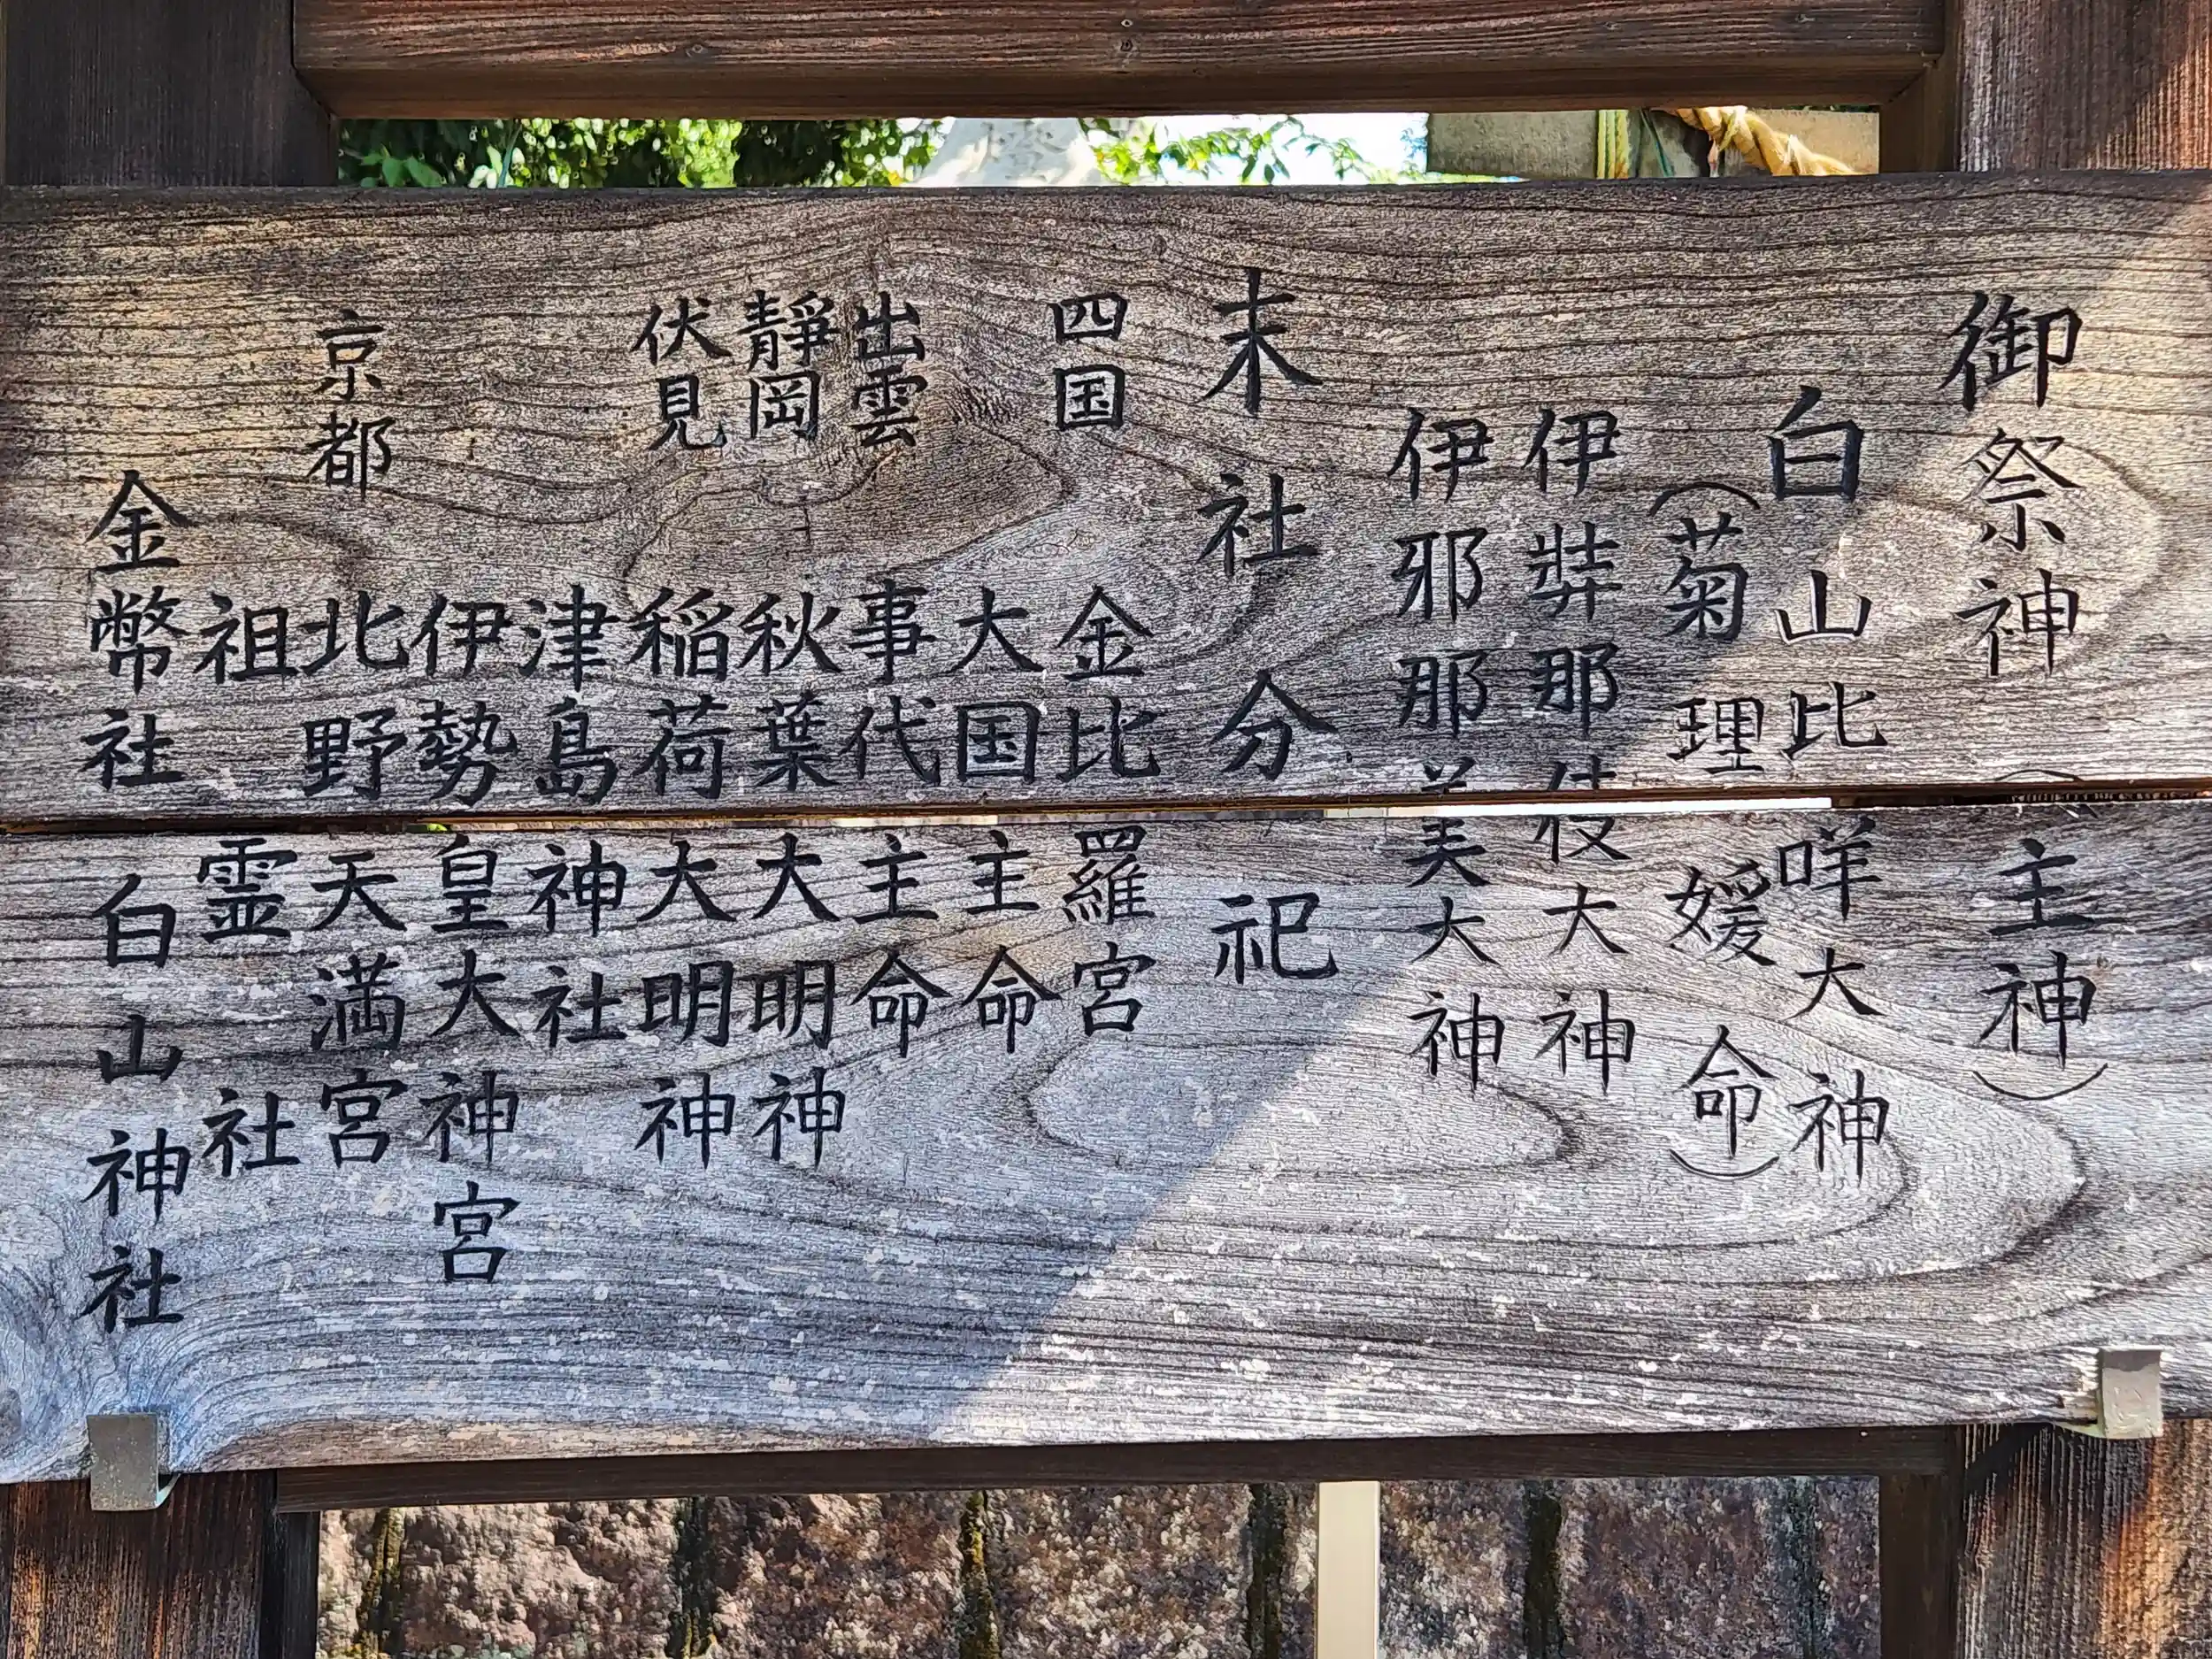 御祭神(主神)
白山比咩大神
(菊理媛命)
伊弉那伎大神
伊邪那美大神
末社分祀
四国 金比羅宮
大国主命
出雲 事代主命
静岡 秋葉大明神
伏見 稲荷大明神
津島神社
伊勢皇大神宮
京都 北野天満宮
祖霊社
金幣社白山神社